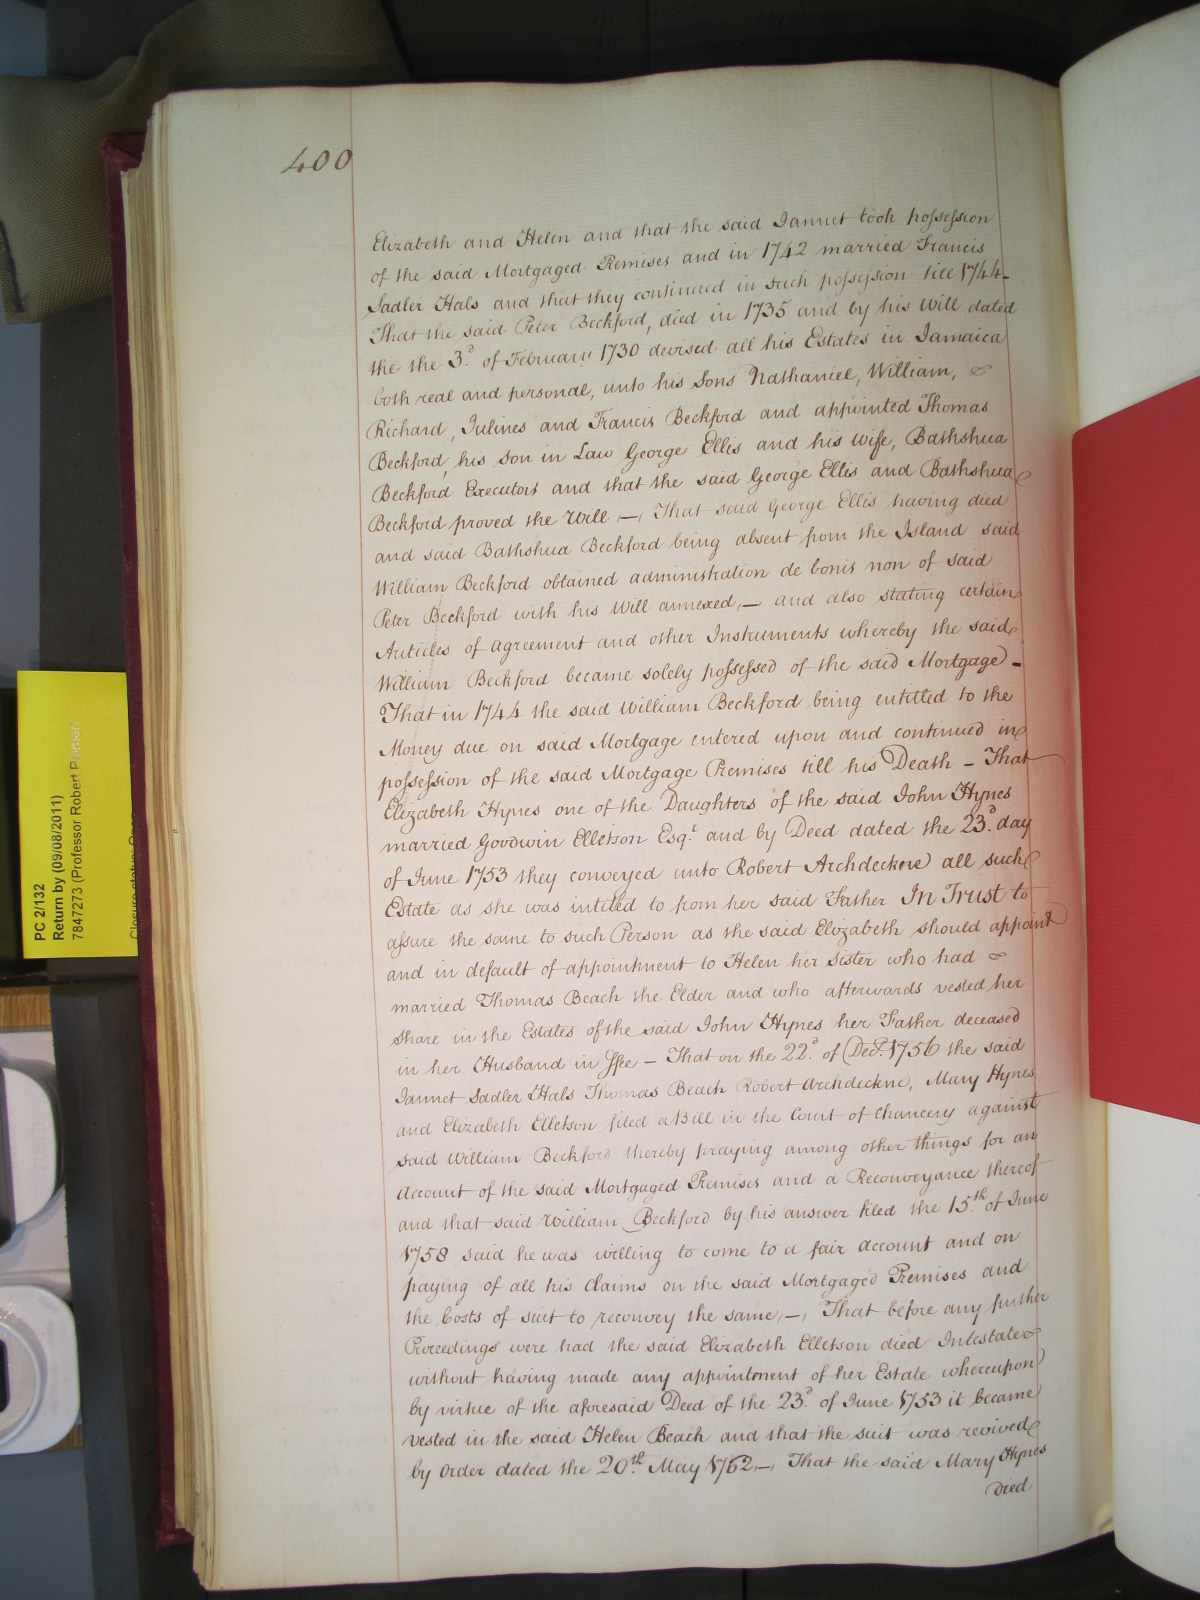 400
Elizabeth and Helen and that the said Jannet took possession
of the said Mortgaged Premises and in 1742 married Francis
Sadler Hals and that they continued in such possession till 1744 –
That the said Peter Beckford, died in 1735 and by his Will dated
the the 3.d of February 1730 devised all his Estates in Jamaica
both real and personal, unto his Sons Nathaniel, William, &
Richard, Julines and Francis Beckford and appointed Thomas
Beckford, his son in Law George Ellis and his wife, Bathshua
Beckford Executors and that the said George Ellis and Bathshua
Beckford proved the Will, —, That said George Ellis having died
and said Bathshua Beckford being absent from the Island said
William Beckford obtained administration de bonis non of said
Peter Beckford with his Will annexed, — and also stating certain
Articles of agreement and other Instruments whereby the said
William Beckford became solely possessed of the said Mortgage –
That in 1744 the said William Beckford being entitled to the
Money due on said Mortgage entered upon and continued in
possession of the said Mortgage Premises till his Death – That
Elizabeth Hynes one of the Daughters of the said John Hynes
married Goodwin Elletson Esq.r and by Deed dated the 23.d day
of June 1753 they conveyed unto Robert Archdeckne all such
Estate as she was intitled to from her said Father In Trust to
assure the same to such Person as the said Elizabeth should appoint
and in default of appointment to Helen her Sister who had
married Thomas Beach the Elder and who afterwards vested her
share in the Estates of the said John Hynes her Father deceased
in her Husband in ffee – That on the 22.d of Dec.r 1756 the said
Jannet Sadler Hals Thomas Beach Robert Archdeckne, Mary Hynes
and Elizabeth Elletson filed a Bill in the Court of Chancery against
said William Beckford thereby praying among other things for an
Account of the said Mortgaged Premises and a Reconveyance thereof
and that said William Beckford by his answer filed the 15.th of June
1758 said he was willing to come to a fair account and on
paying of all his Claims on the said Mortgaged Premises and
the Costs of suit to reconvey the same, —, That before any further
Proceedings were had the said Elizabeth Elletson died Intestate
without having made any appointment of her Estate whereupon
by virtue of the aforesaid Deed of the 23.d of June 1753 it became
vested in the said Helen Beach and that the suit was revived
by Order dated the 20.th May 1762, —, That the said Mary Hynes
Died
PC 2/132
Return by (09/08/2011)
7847273 (Professor Robert